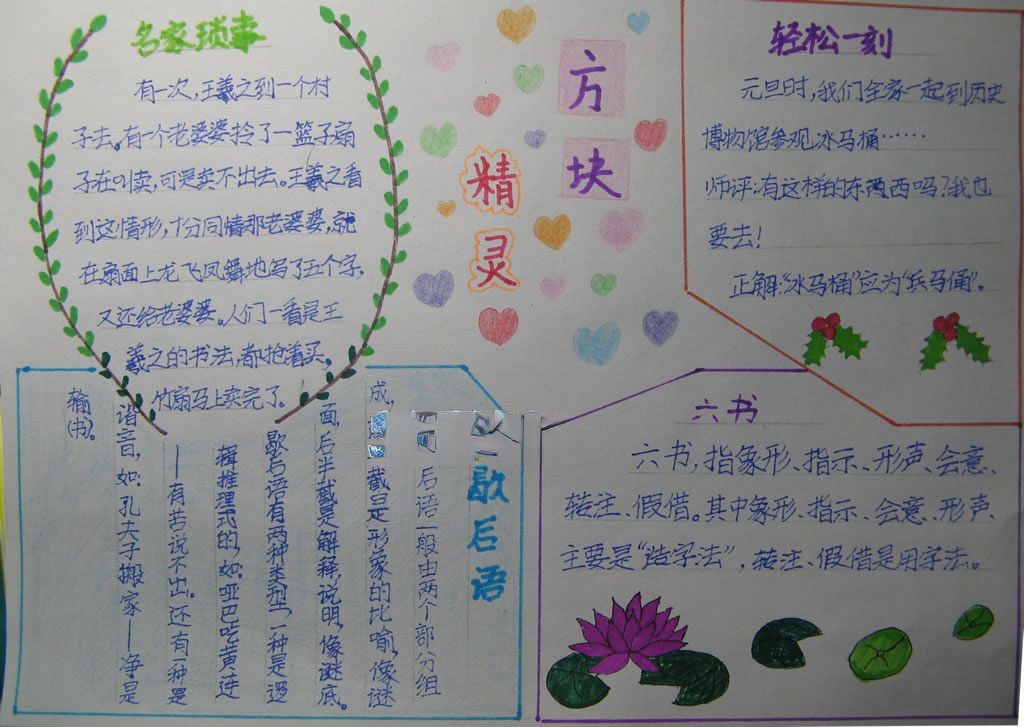 名家琐事
有一次,王羲之到一个村
子去。有一个老婆婆拎了一篮子扇
子在叫卖,可是卖不出去。王羲之看
到这情形,十分同情那老婆婆,就
在扇面上龙飞凤舞地写了五个字,
又还给老婆婆。人们一看是王
羲之的书法,都抢着买,
竹扇马上卖完了。
方块
精灵
轻松一刻
元旦时,我们全家一起到历史
博物馆参观冰马桶……
师评:有这样的东西吗?我也
要去!
正解:“冰马桶”应为“兵马俑”。
歇后语
后语一般由两个部分组
成,截是形象的比喻,像谜
面,后半截是解释、说明,像谜底。
歇后语有两种类型,一种是逻
辑推理式的,如:哑巴吃黄连
——有苦说不出。还有一种是
谐音,如:孔夫子搬家——净是
输(书)。
六书
六书,指象形、指示、形声、会意、
转注、假借。其中象形、指示、会意、形声
主要是“造字法”,转注、假借是用字法。